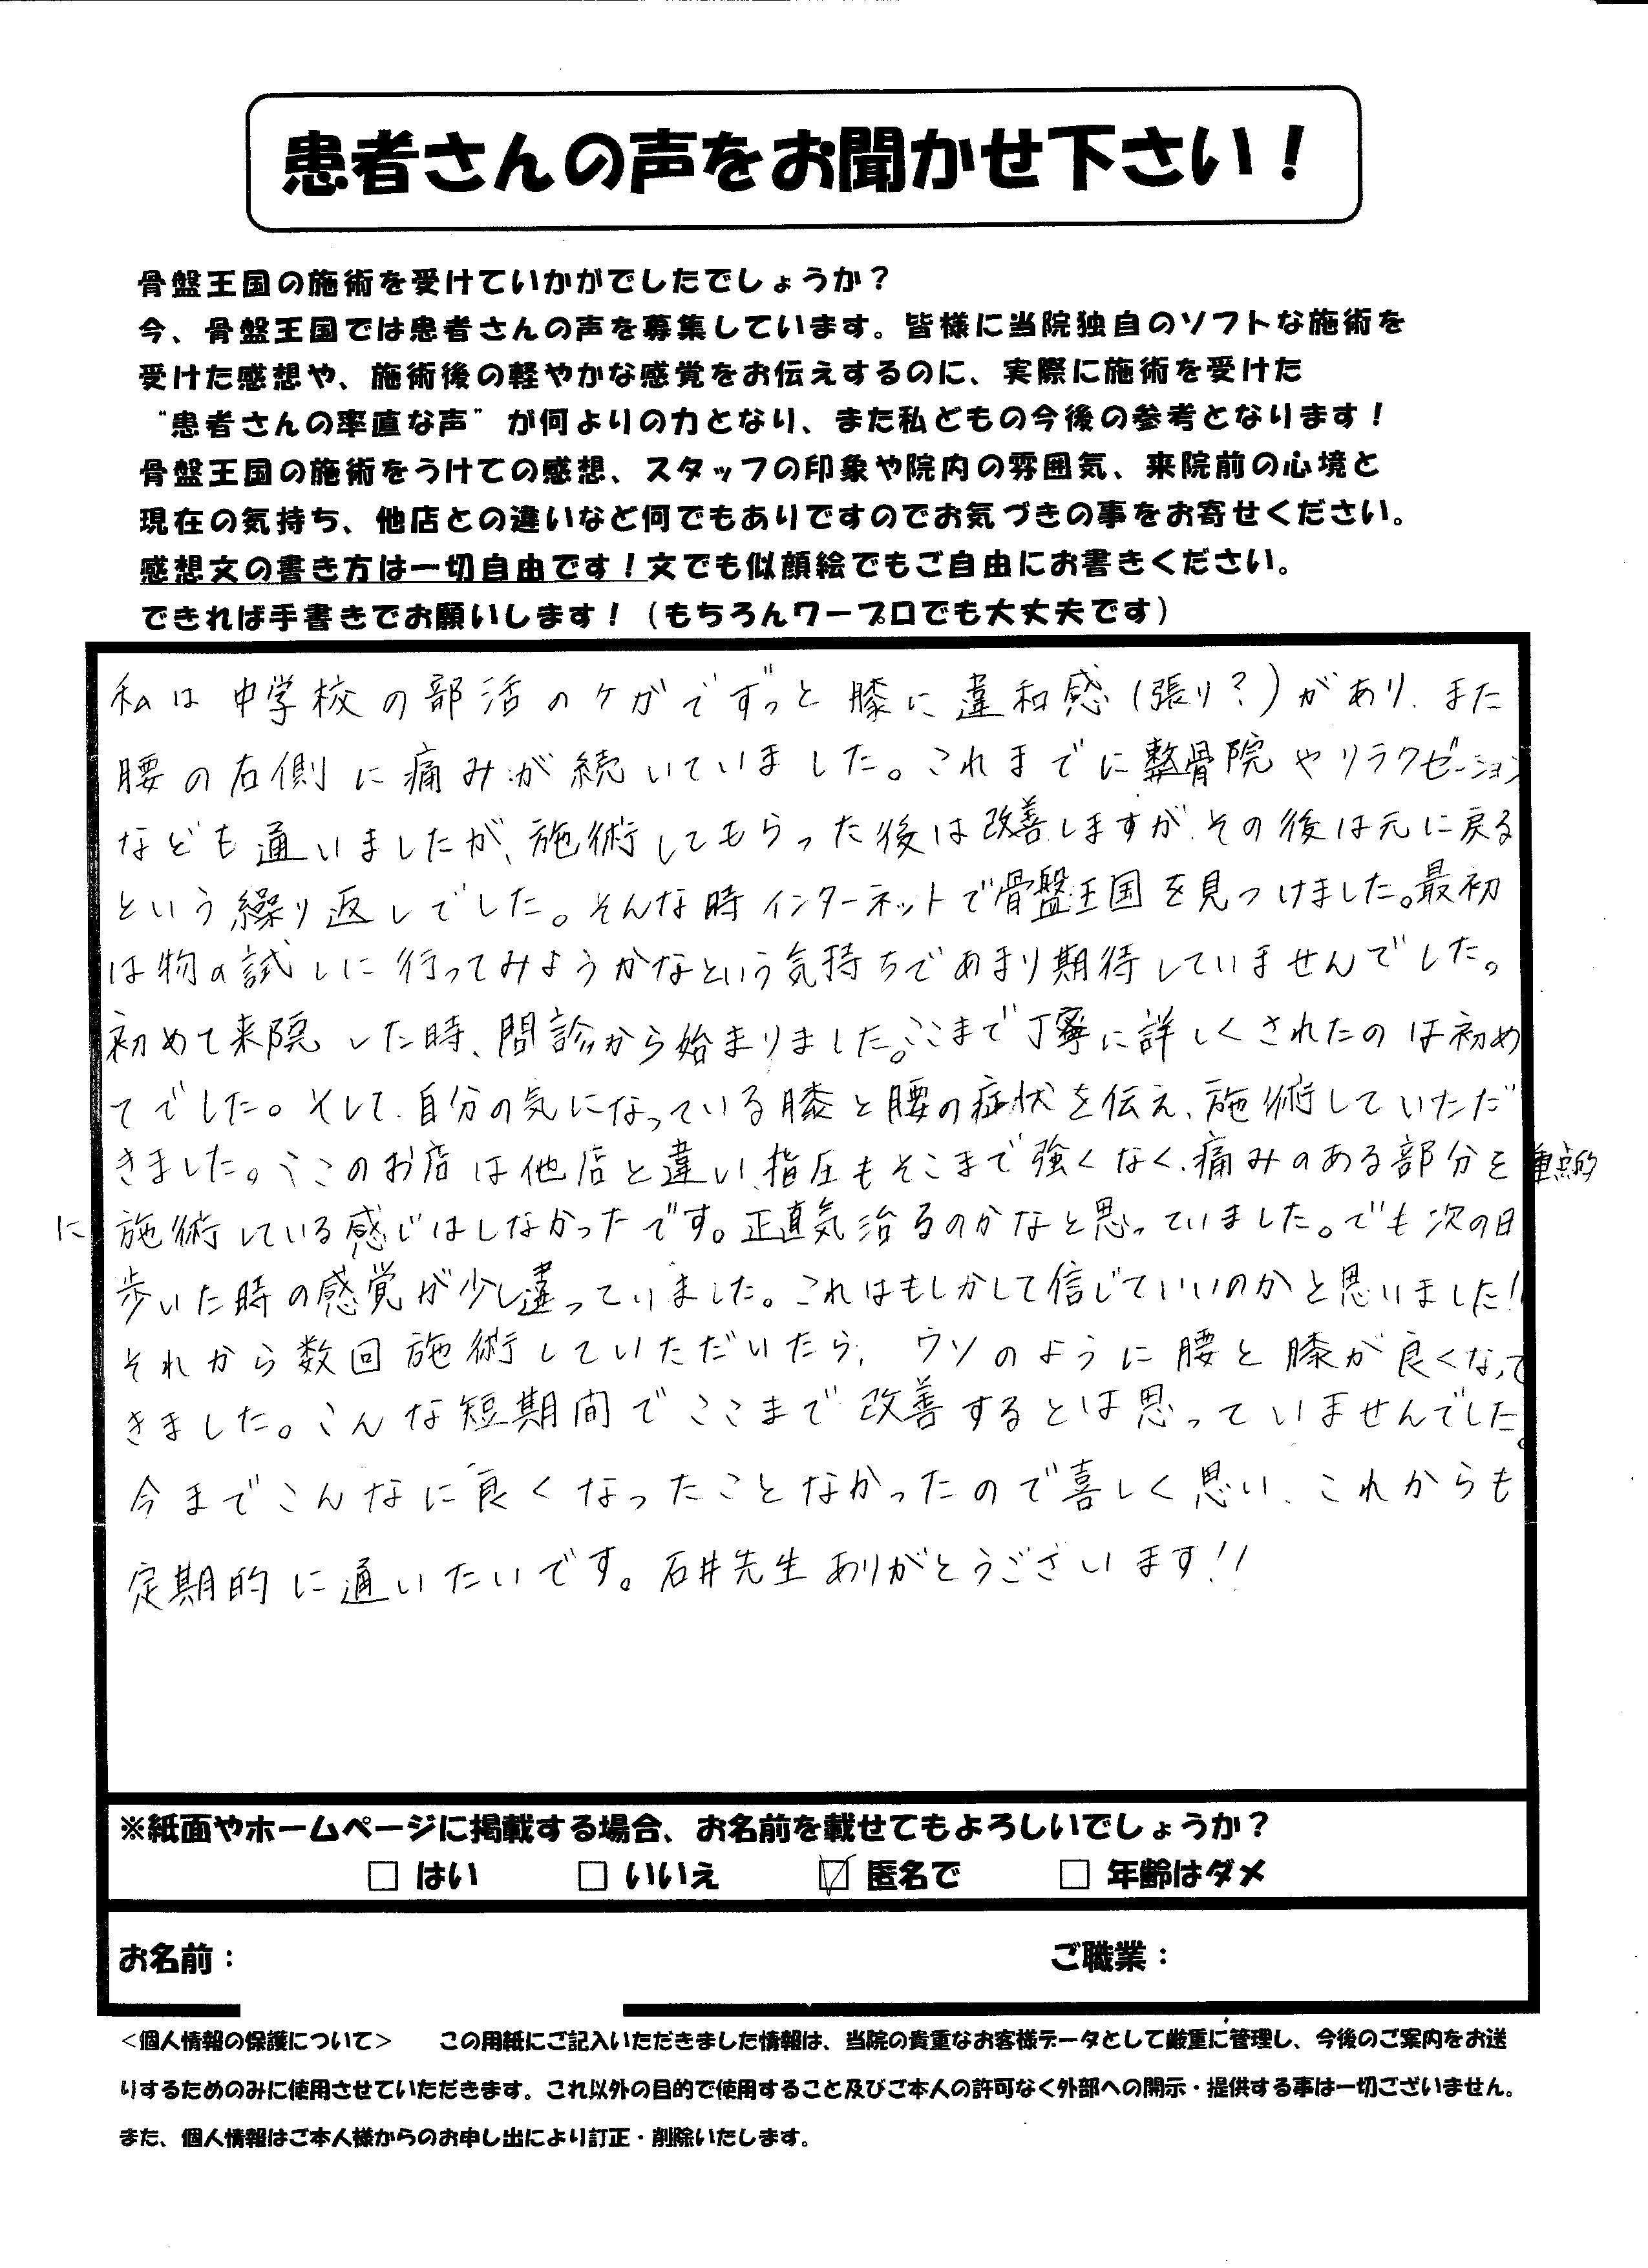 患者さんの声をお聞かせ下さい！
骨盤王国の施術を受けていかがでしたでしょうか？
今、骨盤王国では患者さんの声を募集しています。皆様に当院独自のソフトな施術を
受けた感想や、施術後の軽やかな感覚をお伝えするのに、実際に施術を受けた
“患者さんの率直な声”が何よりの力となり、また私どもの今後の参考となります！
骨盤王国の施術をうけての感想、スタッフの印象や院内の雰囲気、来院前の心境と
現在の気持ち、他店との違いなど何でもありですのでお気づきの事をお寄せください。
感想文の書き方は一切自由です！文でも似顔絵でもご自由にお書きください。
できれば手書きでお願いします！（もちろんワープロでも大丈夫です）
私は中学校の部活のケガでずっと膝に違和感（張り？）があり、また
腰の右側に痛みが続いていました。これまでに整骨院やリラクゼーション
なども通いましたが、施術してもらった後は改善しますが、その後は元に戻る
という繰り返しでした。そんな時インターネットで骨盤王国を見つけました。最初
は物の試しに行ってみようかなという気持ちであまり期待していませんでした。
初めて来院した時、問診から始まりました。ここまで丁寧に詳しくされたのは初め
てでした。そして、自分の気になっている膝と腰の症状を伝え、施術していただ
きました。ここのお店は他店と違い、指圧もそこまで強くなく、痛みのある部分を重点的
に施術している感じはしなかったです。正直気治るのかなと思っていました。でも次の日
歩いた時の感覚が少し違っていました。これはもしかして信じていいのかと思いました！
それから数回施術していただいたら、ウソのように腰と膝が良くなって
きました。こんな短期間でここまで改善するとは思っていませんでした。
今までこんなに良くなったことなかったので喜しく思い、これからも
定期的に通いたいです。石井先生ありがとうございます！！
※紙面やホームページに掲載する場合、お名前を載せてもよろしいでしょうか？
□ はい □ いいえ ☑ 匿名で □ 年齢はダメ
お名前： ご職業：
＜個人情報の保護について＞ この用紙にご記入いただきました情報は、当院の貴重なお客様データとして厳重に管理し、今後のご案内をお送
りするためのみに使用させていただきます。これ以外の目的で使用すること及びご本人の許可なく外部への開示・提供する事は一切ございません。
また、個人情報はご本人様からのお申し出により訂正・削除いたします。